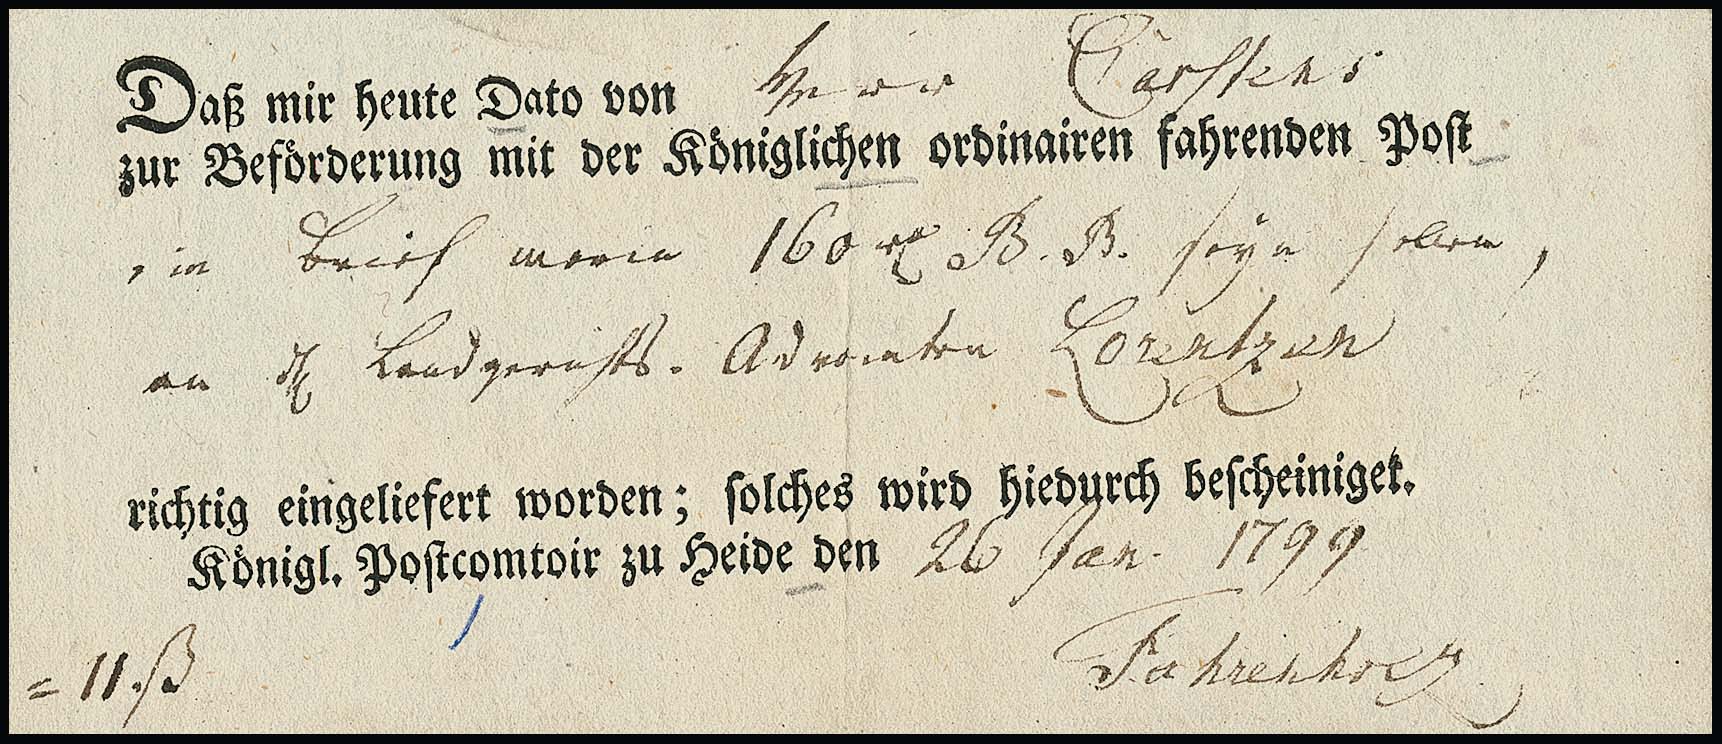 Daß mir heute Dato von Herr Carstens
zur Beförderung mit der Königlichen ordinairen fahrenden Post
ein Brief worin 160 rβ B. B. seyn sollen,
an Landgerichts. Advocaten Lorentzen
richtig eingeliefert worden; solches wird hiedurch bescheiniget.
Königl. Postcomtoir zu Heide den 26 Jan. 1799
= 11. ß
Fahrenholz